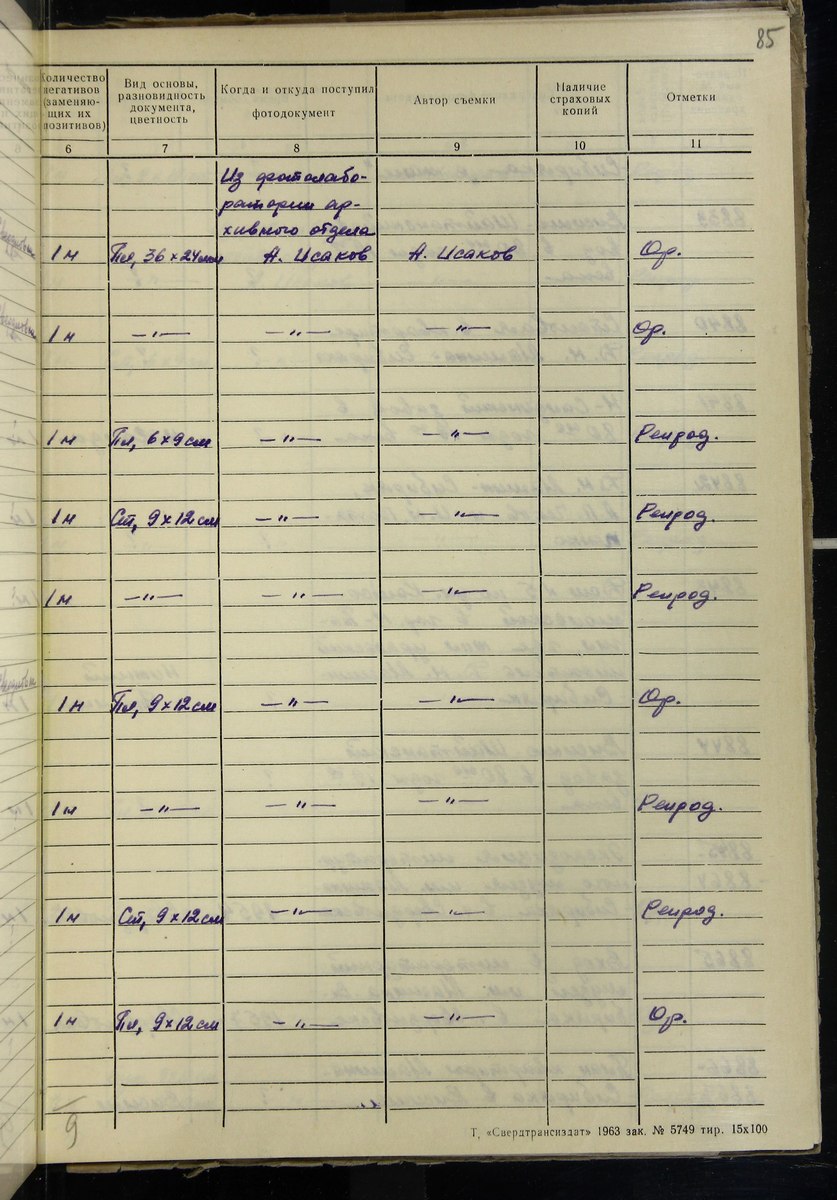 85
Количество негативов (заменяющих их позитивов) | Вид основы, разновидность документа, цветность | Когда и откуда поступил фотодокумент | Автор съемки | Наличие страховых копий | Отметки
6 | 7 | 8 | 9 | 10 | 11
Из фотолабо-
ратории ар-
хивного отдела
1 н | Пл, 36 х 24 мм | А. Исаков | А. Исаков | Ор.
1 н | —"— | —"— | —"— | Ор.
1 н | Пл, 6 х 9 см | —"— | —"— | Репрод.
1 н | Ст, 9 х 12 см | —"— | —"— | Репрод.
1 н | —"— | —"— | —"— | Репрод.
1 н | Пл, 9 х 12 см | —"— | —"— | Ор.
1 н | —"— | —"— | —"— | Репрод.
1 н | Ст, 9 х 12 см | —"— | —"— | Репрод.
1 н | Пл, 9 х 12 см | —"— | —"— | Ор.
9
Т. «Свердтрансиздат» 1963 зак. № 5749 тир. 15х100